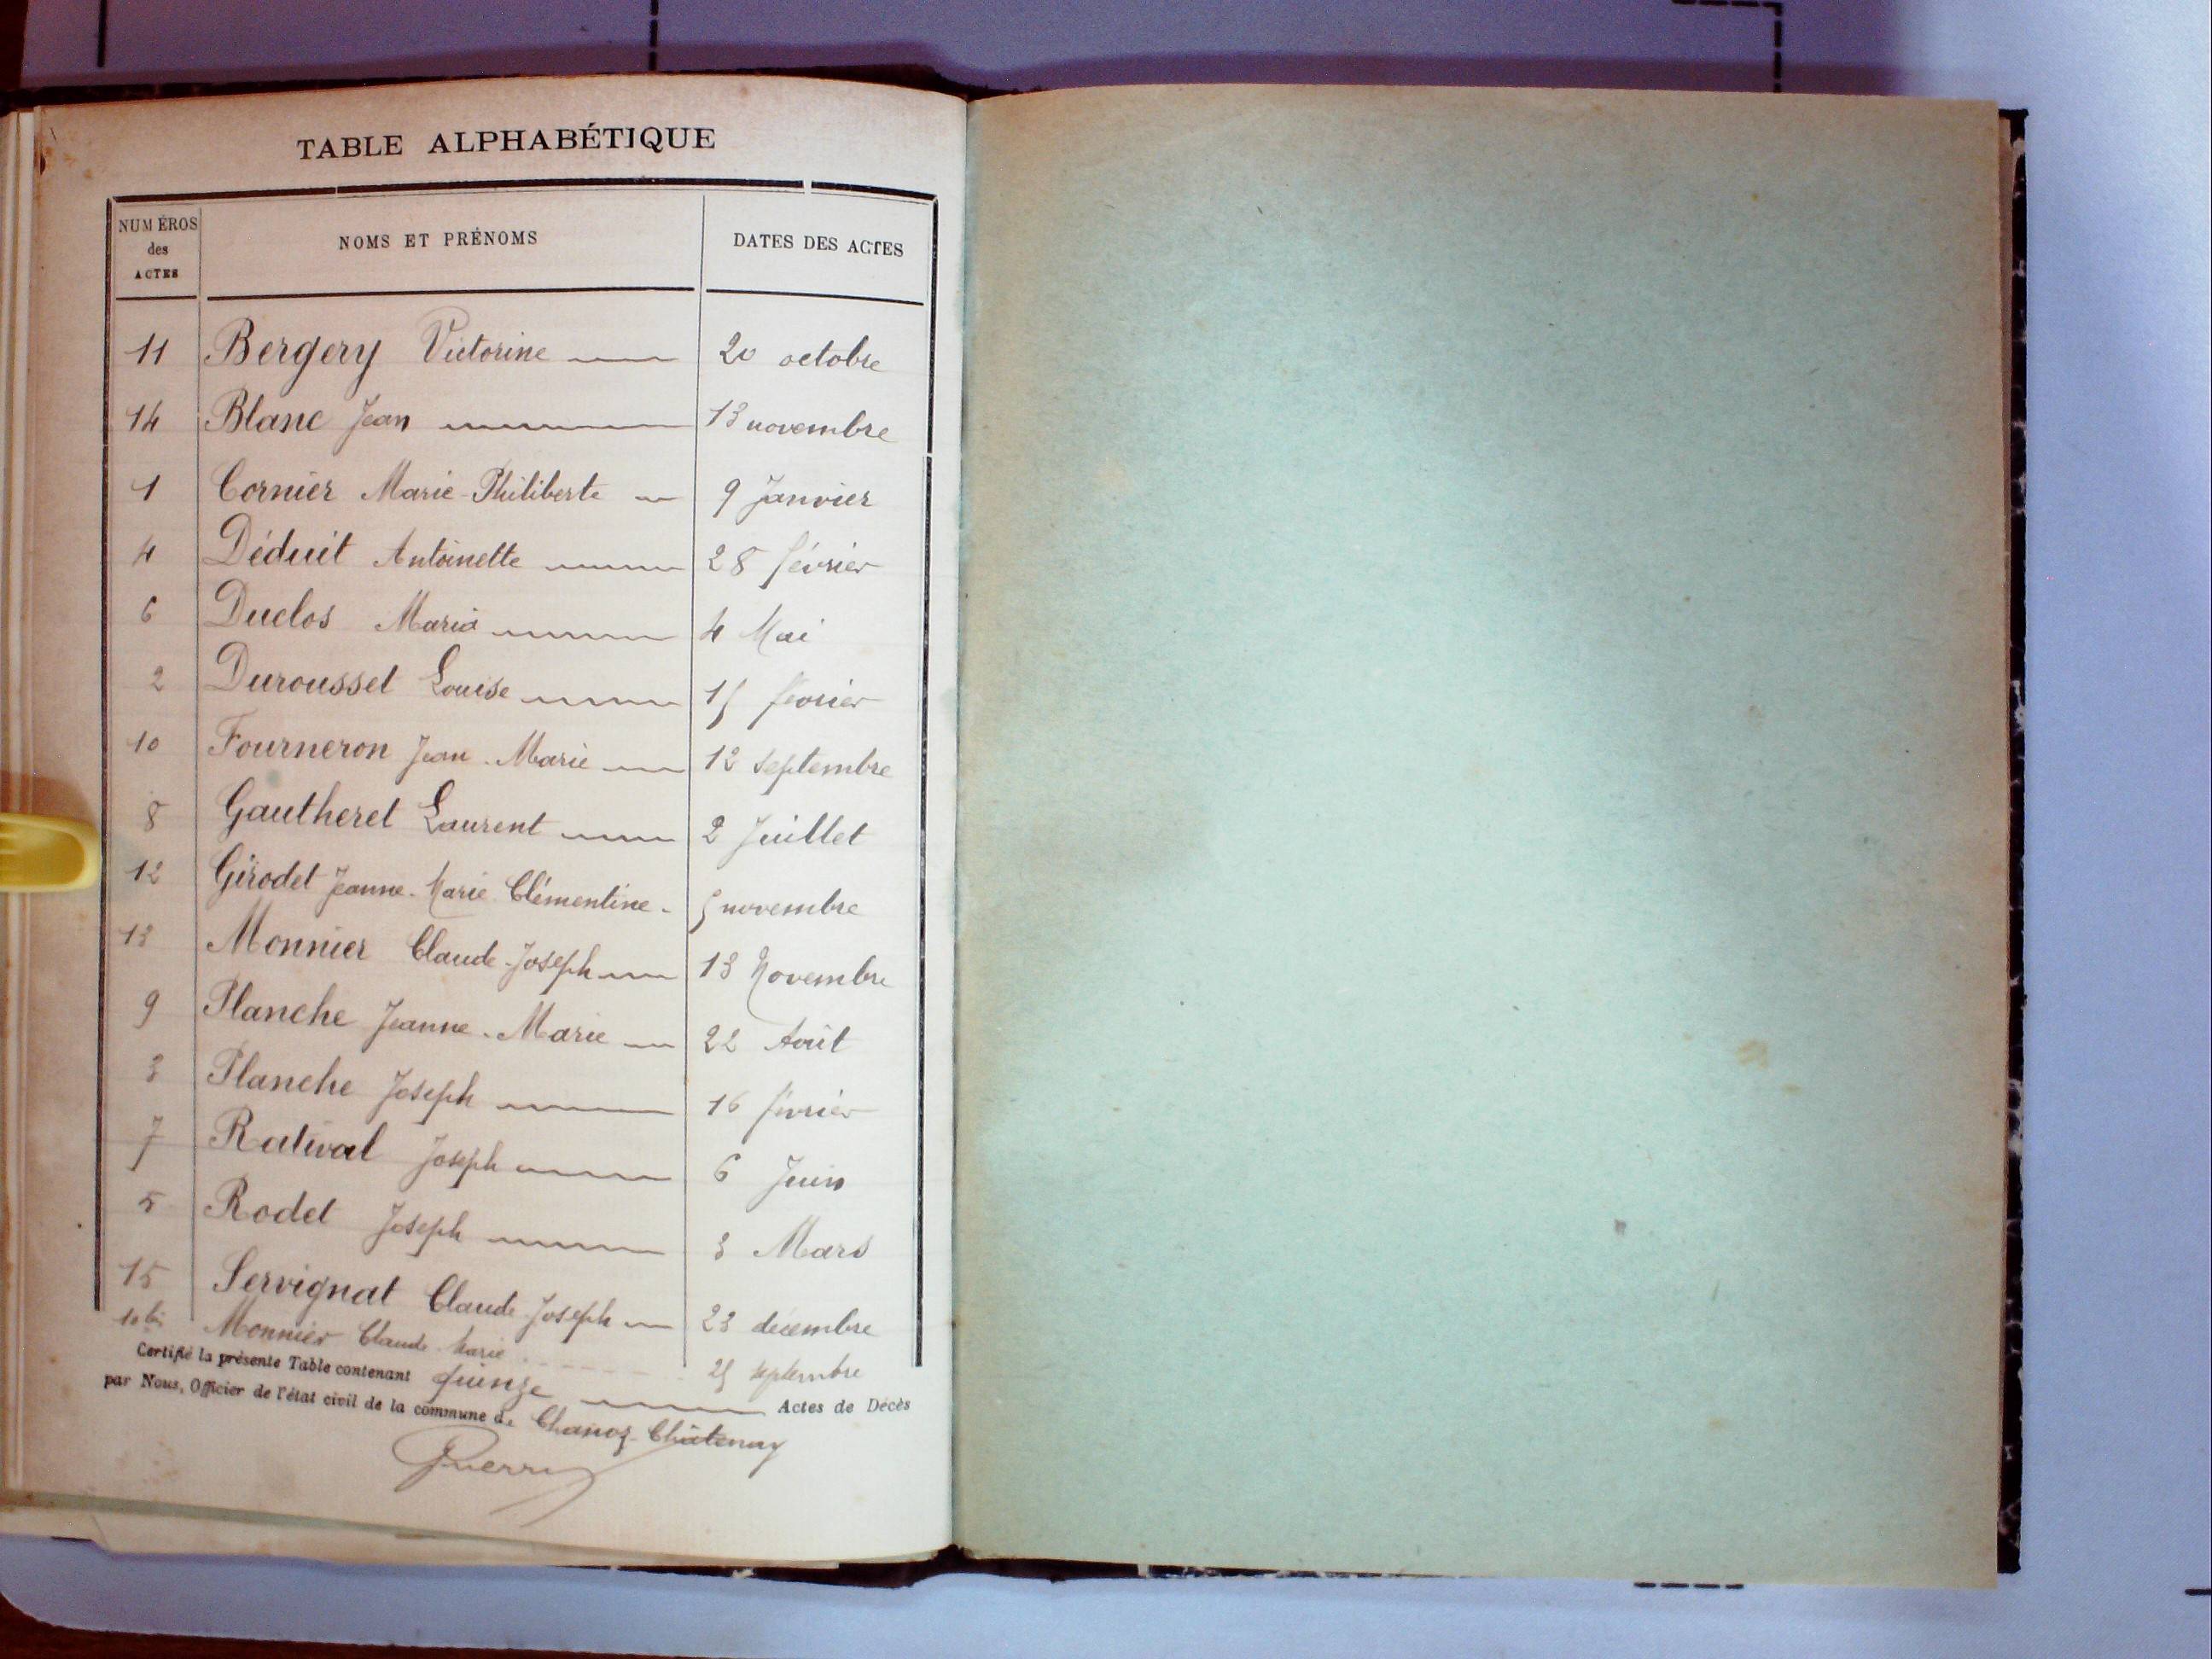 TABLE ALPHABÉTIQUE
NUMÉROS des ACTES NOMS ET PRÉNOMS DATES DES ACTES
11 Bergery Victorine 20 octobre
14 Blanc Jean 13 novembre
1 Cornier Marie-Philiberte 9 Janvier
4 Déduit Antoinette 28 février
6 Duclos Maria 4 Mai
2 Durousset Louise 15 février
10 Fourneron Jean-Marie 12 septembre
8 Gautheret Laurent 2 Juillet
12 Girodet Jeanne-Marie Clémentine 5 novembre
13 Monnier Claude-Joseph 13 Novembre
9 Planche Jeanne-Marie 22 Août
3 Planche Joseph 16 février
7 Ratival Joseph 6 Juin
5 Rodet Joseph 3 Mars
15 Servignat Claude-Joseph 23 décembre
10 bis Monnier Claude-Marie 25 septembre
Certifié la présente Table contenant quinze Actes de Décès
par Nous, Officier de l'état civil de la commune de Chanoz-Châtenay